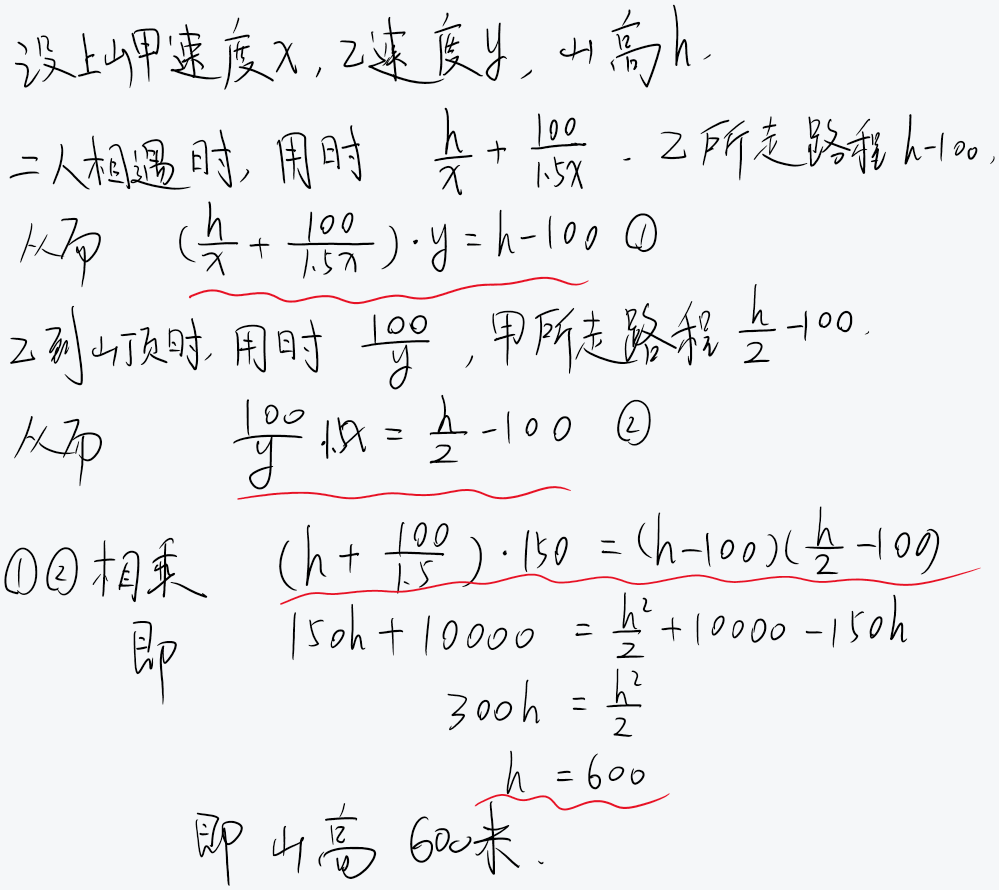 设上山甲速度x,乙速度y,山高h.
二人相遇时,用时 \frac{h}{x}+\frac{100}{1.5x}. 乙所走路程h-100,
从而 (\frac{h}{x}+\frac{100}{1.5x})·y=h-100 ①
乙到山顶时,用时 \frac{100}{y},甲所走路程\frac{h}{2}-100.
从而 \frac{100}{y}·1.5x=\frac{h}{2}-100 ②
①②相乘 (h+\frac{100}{1.5})·150=(h-100)(\frac{h}{2}-100)
即 150h+10000=\frac{h^2}{2}+10000-150h
300h=\frac{h^2}{2}
h=600
即山高600米.